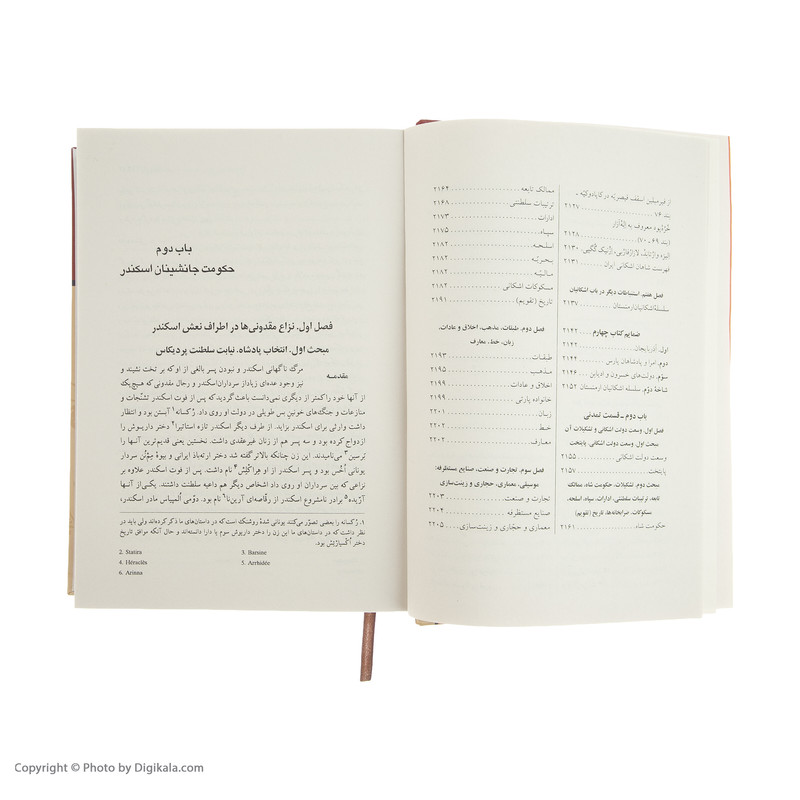 از فیرمیلین اسقف قیصریّه در کاپادوکیّه ـ
بند ۷۶ ۲۱۲۷
خُرَّه‌بود معروف به اِلِه‌آزار
(بند ۶۹ ـ ۷۰) ۲۱۲۸
۲۱۳۰
فهرست شاهان اشکانی ایران ۲۱۳۱
فصل هفتم. استنباطات دیگر در باب اشکانیان
سلسلهٔ اشکانیان ارمنستان ۲۱۳۷
ضمایم کتاب چهارم ۲۱۴۲
اوّل. آذربایجان ۲۱۴۲
دوم. امرا و پادشاهان پارس ۲۱۴۴
سوّم. دولت‌های خسرون و ادیابن ۲۱۴۶
شاخهٔ دوّم. سلسله اشکانیان ارمنستان ۲۱۵۲
باب دوم ـ قسمت تمدنی
فصل اول. وسعت دولت اشکانی و تشکیلات آن
مبحث اول. وسعت دولت اشکانی، پایتخت
وسعت دولت اشکانی ۲۱۵۵
پایتخت ۲۱۵۷
مبحث دوم. تشکیلات، حکومت شاه، ممالک
تابعه، ترتیبات سلطنتی، ادارات، سپاه، اسلحه،
مسکوکات، ضرابخانه‌ها، تاریخ (تقویم)
حکومت شاه ۲۱۶۱
ممالک تابعه ۲۱۶۴
ترتیبات سلطنتی ۲۱۶۸
ادارات ۲۱۷۳
سپاه ۲۱۷۵
اسلحه ۲۱۸۲
بحریّه ۲۱۸۲
مالیّه ۲۱۸۲
مسکوکات اشکانی ۲۱۸۲
تاریخ (تقویم) ۲۱۹۱
فصل دوم. طبقات، مذهب، اخلاق و عادات،
زبان، خط، معارف
طبقات ۲۱۹۳
مذهب ۲۱۹۵
اخلاق و عادات ۲۱۹۹
خانواده پارتی ۲۱۹۹
زبان ۲۲۰۱
خط ۲۲۰۲
معارف ۲۲۰۲
فصل سوم. تجارت و صنعت، صنایع مستظرفه:
موسیقی، معماری، حجاری و زینت‌سازی
تجارت و صنعت ۲۲۰۳
صنایع مستظرفه ۲۲۰۴
معماری و حجّاری و زینت‌سازی ۲۲۰۵
باب دوم
حکومت جانشینان اسکندر
فصل اول. نزاع مقدونی‌ها در اطراف نعش اسکندر
مبحث اول. انتخاب پادشاه. نیابت سلطنت پردیکاس
مقدمه مرگ ناگهانی اسکندر و نبودن پسر بالغی از او که بر تخت نشیند و
نیز وجود عده‌ای زیاد از سرداران اسکندر و رجال مقدونی که هیچ‌یک
از آنها خود را کمتر از دیگری نمی‌دانست باعث گردید که پس از فوت اسکندر تشنّجات و
منازعات و جنگ‌های خونین بس طویلی در دولت او روی داد. رُکسانه۱ آبستن بود و انتظار
داشت وارثی برای اسکندر بزاید. از طرف دیگر اسکندر تازه استاتیرا۲ دختر داریوش را
ازدواج کرده بود و سه پسر هم از زنان غیرعقدی داشت. نخستین یعنی قدیم‌ترین آنها را
ترسین۳ می‌نامیدند. این زن چنانکه بالاتر گفته شد دختر ارته‌باذ ایرانی و بیوهٔ مِم‌نُن سردار
یونانی اُخُس بود و پسر اسکندر از او هِراکلِیْس۴ نام داشت. پس از فوت اسکندر علاوه بر
نزاعی که بین سرداران او روی داد اشخاص دیگر هم داعیه سلطنت داشتند. یکی از آنها
آرّیده۵ برادر نامشروع اسکندر از رقّاصه‌ای آرین‌نا۶ نام بود. دومی اُلمپیاس مادر اسکندر،
۱. رُکسانه را بعضی تصوّر می‌کنند یونانی شدهٔ روشنک است که در داستان‌های ما ذکر کرده‌اند ولی باید در
نظر داشت که در داستان‌های ما این زن را دختر داریوش سوم یا دارا دانسته‌اند و حال آنکه موافق تاریخ
دختر اُکسیارتِش بود.
2. Statira 3. Barsine
4. Héraclès 5. Arrhidée
6. Arinna
Copyright © Photo by Digikala.com